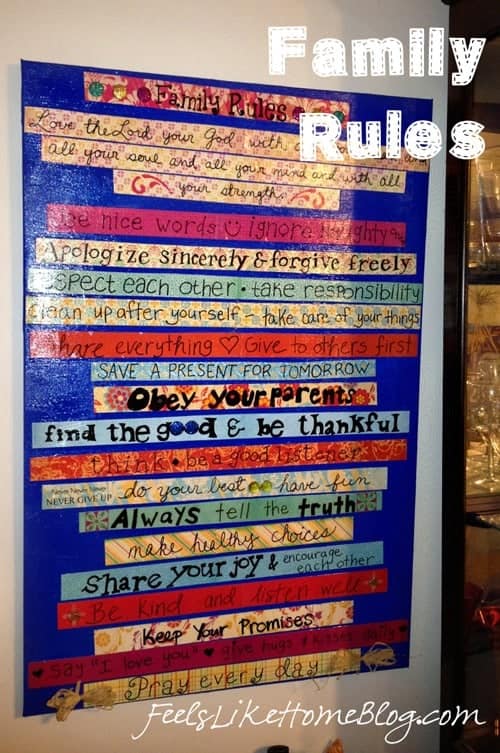 Family
Rules
Family Rules
Love the Lord your God with
all your soul and all your mind and with all
your strength.
Use nice words ignore naughty
Apologize sincerely & forgive freely
Respect each other • take responsibility
Clean up after yourself - take care of your things
Share everything ♡ Give to others first
SAVE A PRESENT FOR TOMORROW
Obey your parents
find the good & be thankful
think • be a good listener
Never Never Never
NEVER GIVE UP
do your best have fun
Always tell the truth
make healthy choices
Share your joy & encourage
each other
Be kind and listen well
Keep Your Promises
♥ say "I love you" ♥ give hugs & kisses daily ♥
Pray every day
FeelsLikeHomeBlog.com